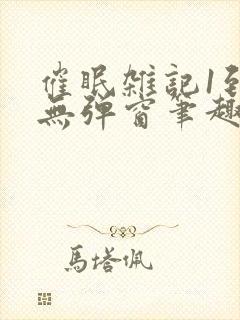 催眠雑記1到
無彈窗筆趣
馬塔佩